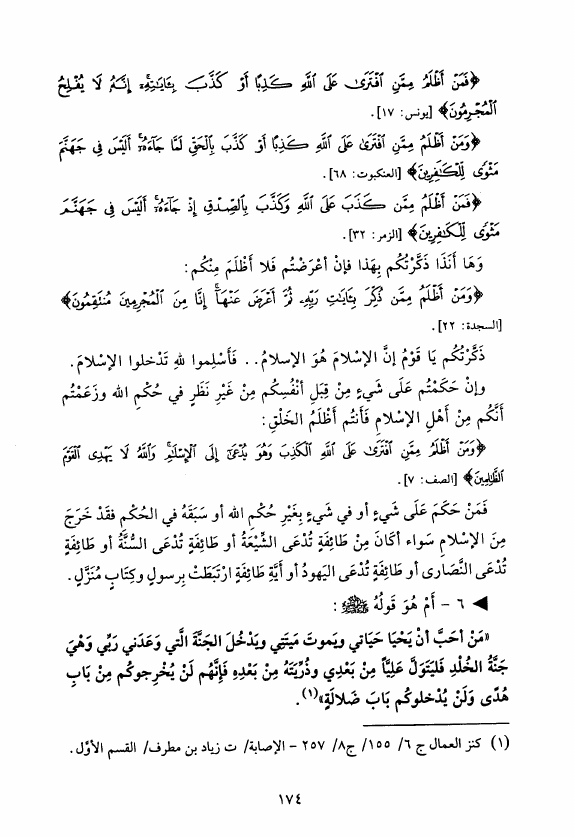 ﴿فَمَنْ أَظْلَمُ مِمَّنِ افْتَرَىٰ عَلَى اللَّهِ كَذِبًا أَوْ كَذَّبَ بِآيَاتِهِ إِنَّهُ لَا يُفْلِحُ
الْمُجْرِمُونَ﴾ [يونس: ١٧].
﴿وَمَنْ أَظْلَمُ مِمَّنِ افْتَرَىٰ عَلَى اللَّهِ كَذِبًا أَوْ كَذَّبَ بِالْحَقِّ لَمَّا جَاءَهُ أَلَيْسَ فِي جَهَنَّمَ
مَثْوًى لِلْكَافِرِينَ﴾ [العنكبوت: ٦٨].
﴿فَمَنْ أَظْلَمُ مِمَّن كَذَبَ عَلَى اللَّهِ وَكَذَّبَ بِالصِّدْقِ إِذْ جَاءَهُ أَلَيْسَ فِي جَهَنَّمَ
مَثْوًى لِلْكَافِرِينَ﴾ [الزمر: ٣٢].
وَهَا أَنَذَا ذَكَّرْتُكُم بِهَذا فإنْ أعْرَضْتُم فَلا أَظْلَمَ مِنْكُم:
﴿وَمَنْ أَظْلَمُ مِمَّن ذُكِّرَ بِآيَاتِ رَبِّهِ ثُمَّ أَعْرَضَ عَنْهَا إِنَّا مِنَ الْمُجْرِمِينَ مُنتَقِمُونَ﴾
[السجدة: ٢٢].
ذَكَّرْتُكُم يَا قَوْمُ إنَّ الإسْلامَ هُوَ الإسلامُ.. فَأسْلِموا للهِ تَدْخلوا الإسْلامَ.
وإنْ حَكَمْتُم عَلَى شَيءٍ مِنْ قِبَلِ أنْفُسِكُم مِنْ غَيْرِ نَظَرٍ في حُكْمِ الله وزَعَمْتُم
أنَّكُم مِنْ أهْلِ الإسْلامِ فَأنتُم أظْلَمُ الخَلْقِ:
﴿وَمَنْ أَظْلَمُ مِمَّنِ افْتَرَىٰ عَلَى اللَّهِ الْكَذِبَ وَهُوَ يُدْعَىٰ إِلَى الْإِسْلَامِ وَاللَّهُ لَا يَهْدِي الْقَوْمَ
الظَّالِمِينَ﴾ [الصف: ٧].
فَمَنْ حَكَمَ عَلَى شَيءٍ أو في شَيءٍ بِغَيْرِ حُكْمِ الله أو سَبَقَهُ في الحُكْمِ فقَدْ خَرَجَ
مِنَ الإسْلامِ سَواء أكَانَ مِنْ طَائِفَةٍ تُدْعَى الشِّيْعَةُ أو طَائِفَةٍ تُدْعَى السُّنَّةُ أو طَائِفَةٍ
تُدْعَى النَّصَارى أو طَائِفَةٍ تُدْعَى اليَهودُ أو أيَّةِ طَائِفَةٍ ارْتَبَطَتْ بِرسولٍ وكِتابٍ مُنَزَّلٍ.
◄ ٦ - أمْ هُوَ قَولُهُ ﷺ:
«مَنْ أحَبَّ أنْ يَحْيَا حَيَاتي ويَموتَ مَيتَتي ويَدْخُلَ الجَنَّةَ الَّتي وَعَدَني رَبِّي وَهْيَ
جَنَّةُ الخُلْدِ فَليَتَوَلَّ عَلِيّاً مِنْ بَعْدِي وذُرِّيَتَهُ مِنْ بَعْدِهِ فَإنَّهُم لَنْ يُخْرِجوكُم مِنْ بَابِ
هُدًى وَلَنْ يُدْخلوكُم بَابَ ضَلالَةٍ»(١).
(١) كنز العمال ج ٦/ ١٥٥/ ج٨/ ٢٥٧ - الإصابة/ ت زياد بن مطرف/ القسم الأوَّل.
١٧٤